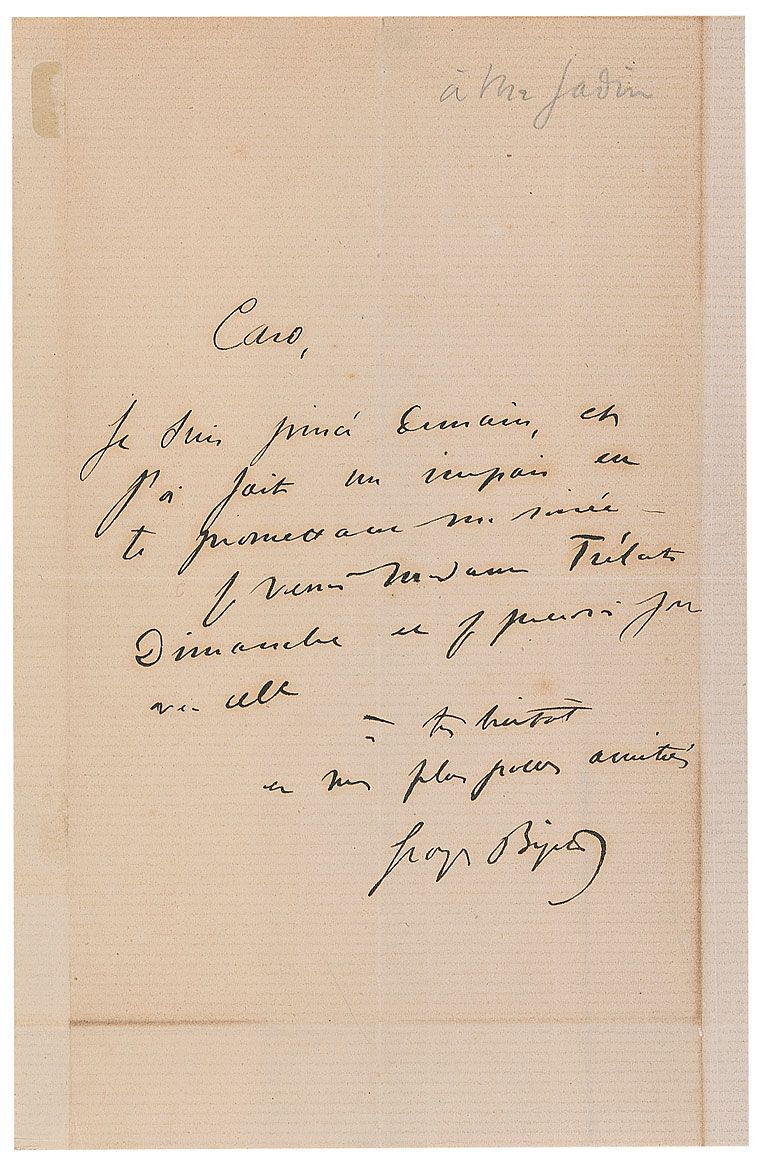 à Mr Jadin
Caro,
Je suis pincé demain, et
j'ai fait un impair en
te promettant ma soirée –
Je verrai Madame Trélat
Dimanche et je
elle
à très bientôt
et mes plus amitiés
Georges Bizet